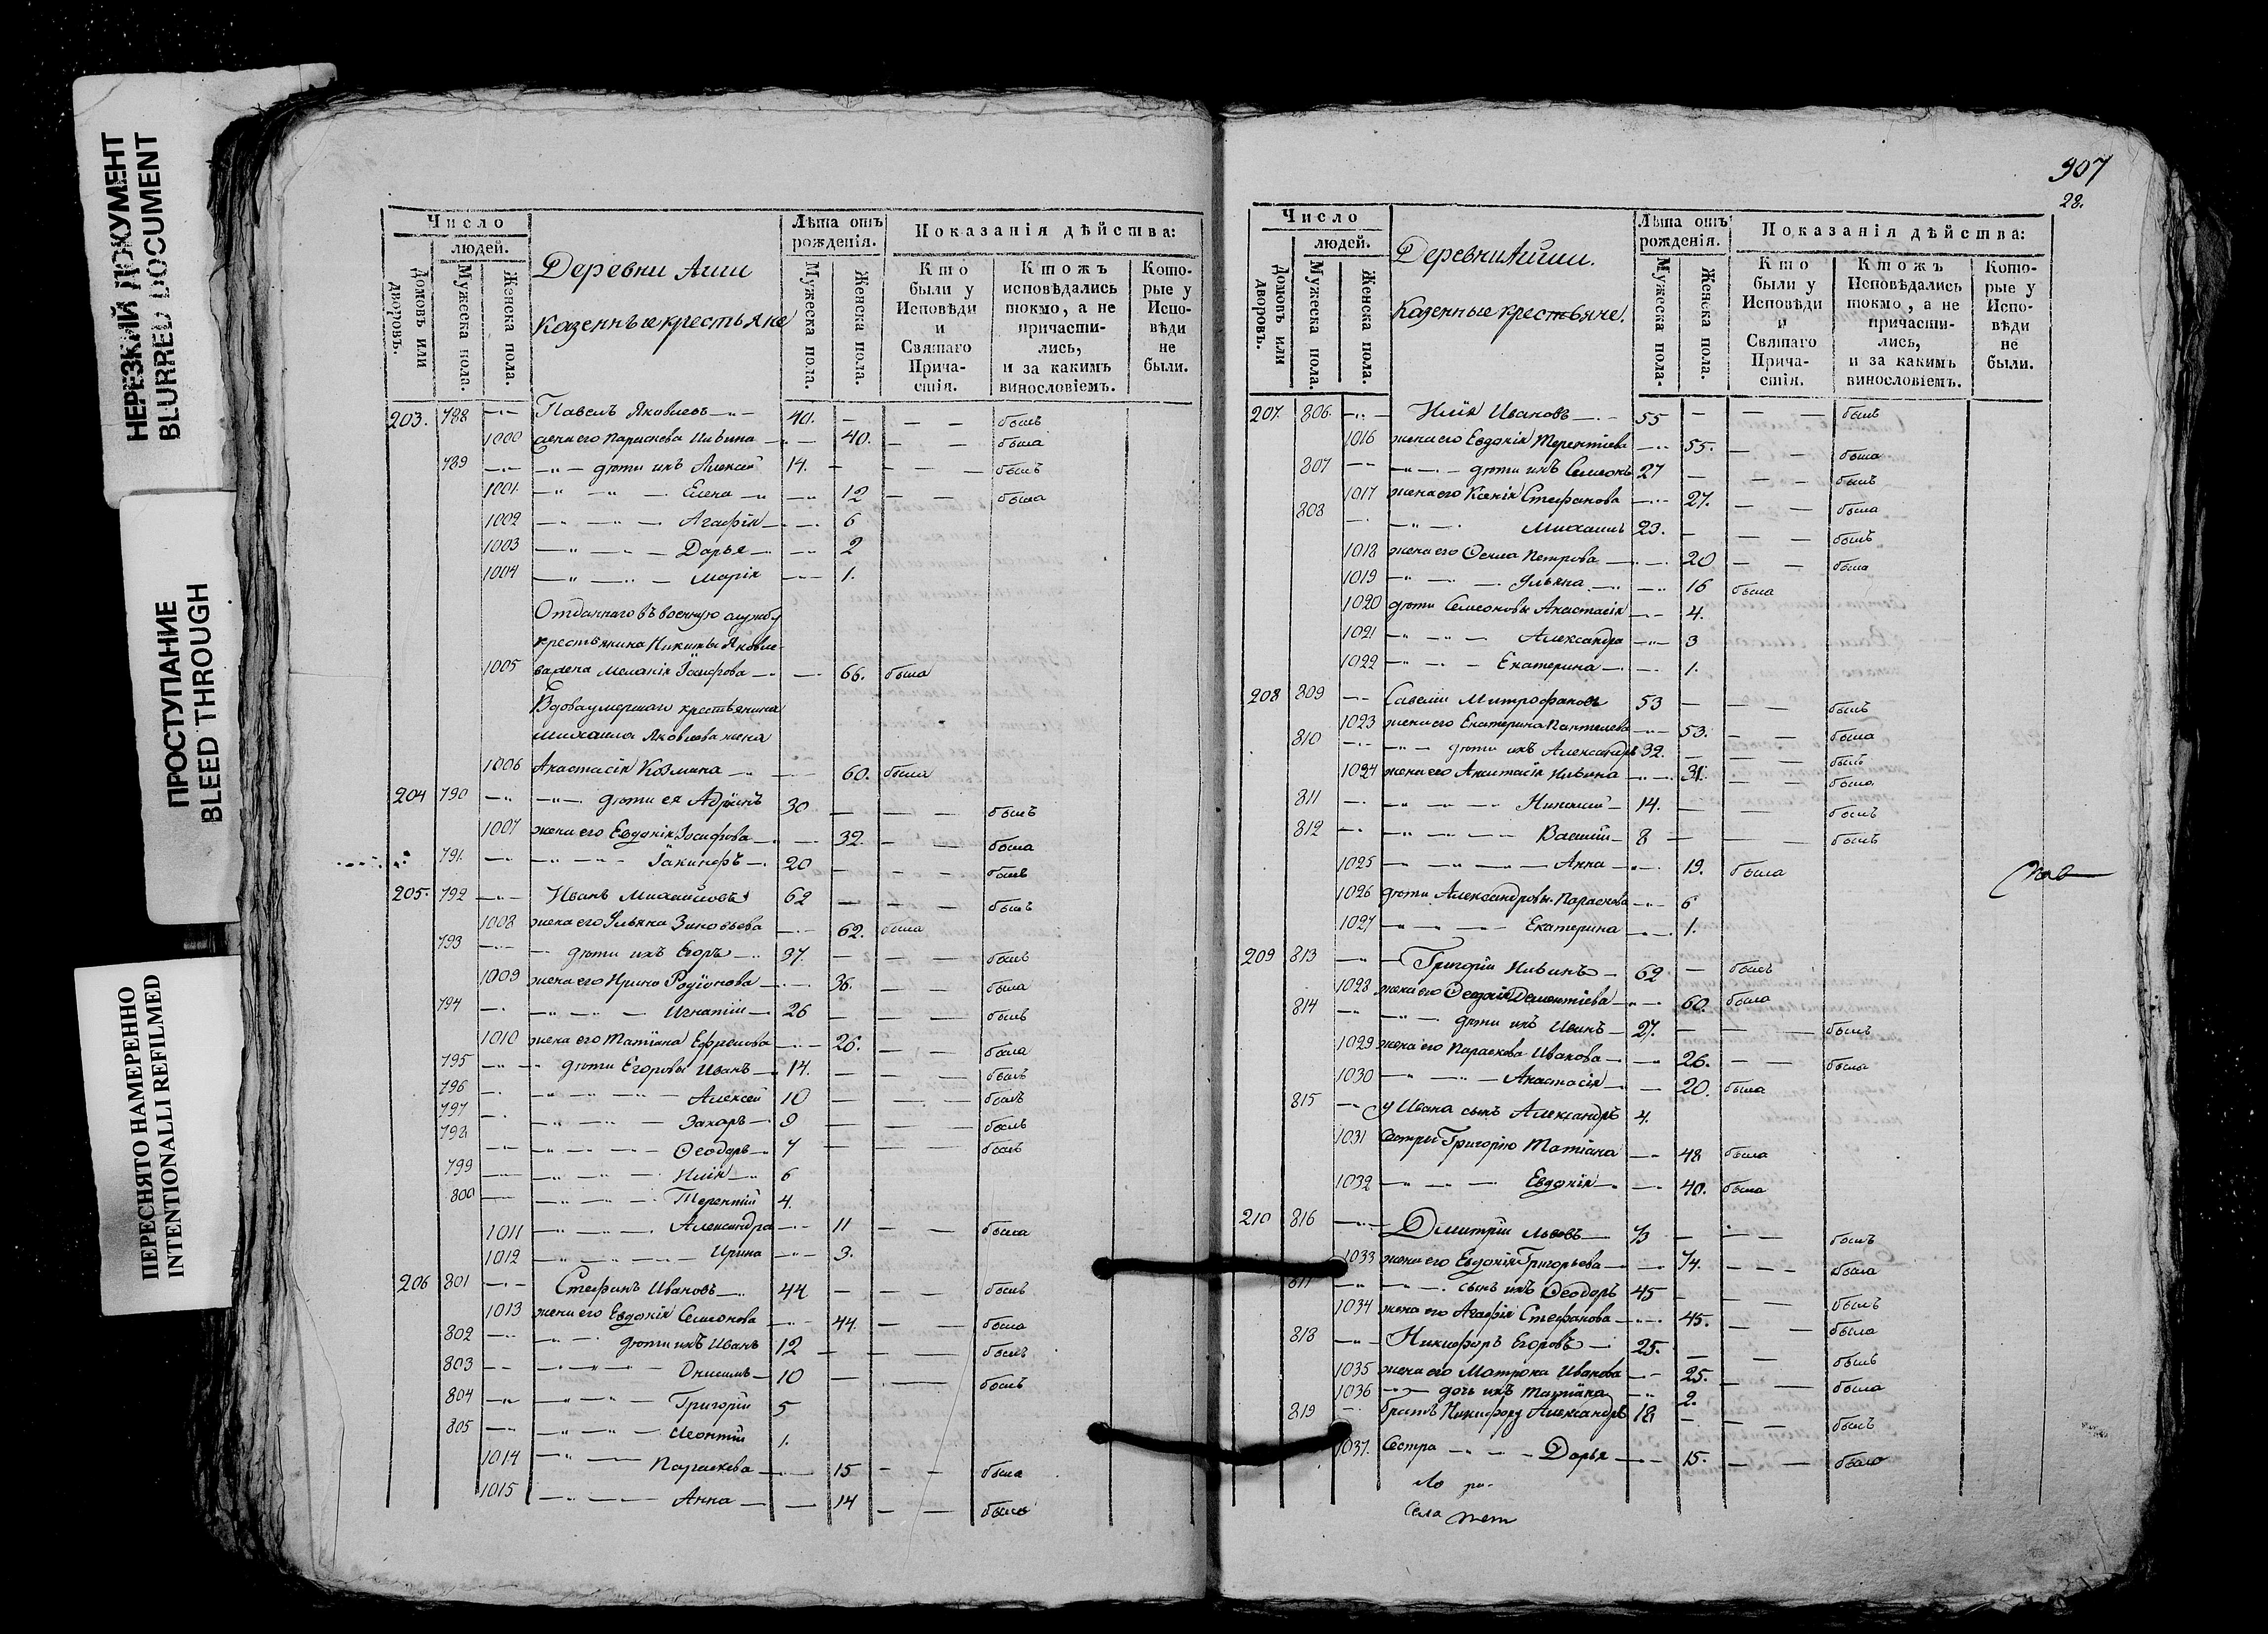 НЕРЕЗКИЙ ДОКУМЕНТ
BLURRED DOCUMENT
ПРОСТУПАНИЕ
BLEED THROUGH
ПЕРЕСНЯТО НАМЕРЕННО
INTENTIONALLI REFILMED
Число
людей.
Домовъ или дворовъ.
Мужеска пола.
Женска пола.
Деревни Аши
казенные крестьяне
Лѣта отъ рожденія.
Мужеска пола.
Женска пола.
Показанія дѣйства:
Кто были у Исповѣди и Святаго Причастія.
Ктожъ исповѣдались токмо, а не причастились, и за какимъ винословіемъ.
Которые у Исповѣди не были.
203. 788 Павелъ Яковлевъ 40. былъ
1000 жена его Параскева Ильина 40. была
789 дѣти ихъ Алексей 14. былъ
1001 Елена 12 была
1002 Агафія 6
1003 Дарья 2
1004 Марія 1.
Отданнаго въ военную службу
крестьянина Никиты Яковле-
1005 ва жена Меланія Іосифова 66. была
Вдова умершаго крестьянина
Михаила Яковлева жена
1006 Анастасія Козмина 60. была
204 790 дѣти ея Адріянъ 30 былъ
1007 жена его Евдокія Іосифова 32. была
791. Іакинфъ 20 былъ
205. 792 Иванъ Михайловъ 62 былъ
1008 жена его Ульяна Зиновьева 62. была
793 дѣти ихъ Егоръ 37. былъ
1009 жена его Ирина Родіонова 36. была
794 Игнатій 26 былъ
1010 жена его Татіана Ефремова 26. была
795 дѣти Егоровы Иванъ 14. былъ
796 Алексей 10 былъ
797 Захаръ 9 былъ
798 Ѳеодоръ 7 былъ
799 Илія 6
800 Терентій 4.
1011 Александра 11 была
1012 Ирина 3.
206 801 Стефанъ Ивановъ 44 былъ
1013 жена его Евдокія Семионова 44. была
802 дѣти ихъ Иванъ 12 былъ
803 Онисимъ 10 былъ
804 Григорій 5
805 Леонтій 1.
1014 Параскева 15 была
1015 Анна 14 была
907
28.
Число
людей.
Домовъ или дворовъ.
Мужеска пола.
Женска пола.
Деревни Аши.
Казенные крестьяне.
Лѣта отъ рожденія.
Мужеска пола.
Женска пола.
Показанія дѣйства:
Кто были у Исповѣди и Святаго Причастія.
Ктожъ Исповѣдались токмо, а не причастились, и за какимъ винословіемъ.
Которые у Исповѣди не были.
207. 806 Илія Ивановъ 55 былъ
1016 жена его Евдокія Терентіева 55. была
807 дѣти ихъ Семионъ 27 былъ
1017 жена его Ксенія Стефанова 27. была
808 Михаилъ 23. былъ
1018 жена его Петрова 20 была
1019 Ульяна 16 была
1020 дѣти Семионовы Анастасія 4.
1021 Александра 3
1022 Екатерина 1.
208 809 Савелій Митрофановъ 53 былъ
1023 жена его Екатерина Пантелеева 53. была
810 дѣти ихъ Александръ 32. былъ
1024 жена его Анастасія Ильина 31. была
811 Николай 14. былъ
812 Василій 8 былъ
1025 Анна 19. была
1026 дѣти Александровы Параскева 6
1027 Екатерина 1.
209 813 Григорій Ильинъ 62 былъ
1028 жена его Дементіева 60. была
814 дѣти ихъ Иванъ 27. былъ
1029 жена его Параскева Иванова 26. была
1030 Анастасія 20. была
815 у Ивана сынъ Александръ 4.
1031 Сестры Григорію Татіана 48 была
1032 Евдокія 40. была
210 816 Дмитрій Львовъ 73 былъ
1033 жена его Евдокія Григорьева 74. была
817 сынъ ихъ Ѳеодоръ 45 былъ
1034 жена его Агафія Стефанова 45. была
818 Никифоръ Егоровъ 25. былъ
1035 жена его Матрона Иванова 25. была
1036 дочь ихъ Татіана 2.
819 братъ Никифору Александръ 18 былъ
1037. Сестра Дарья 15. была
Села